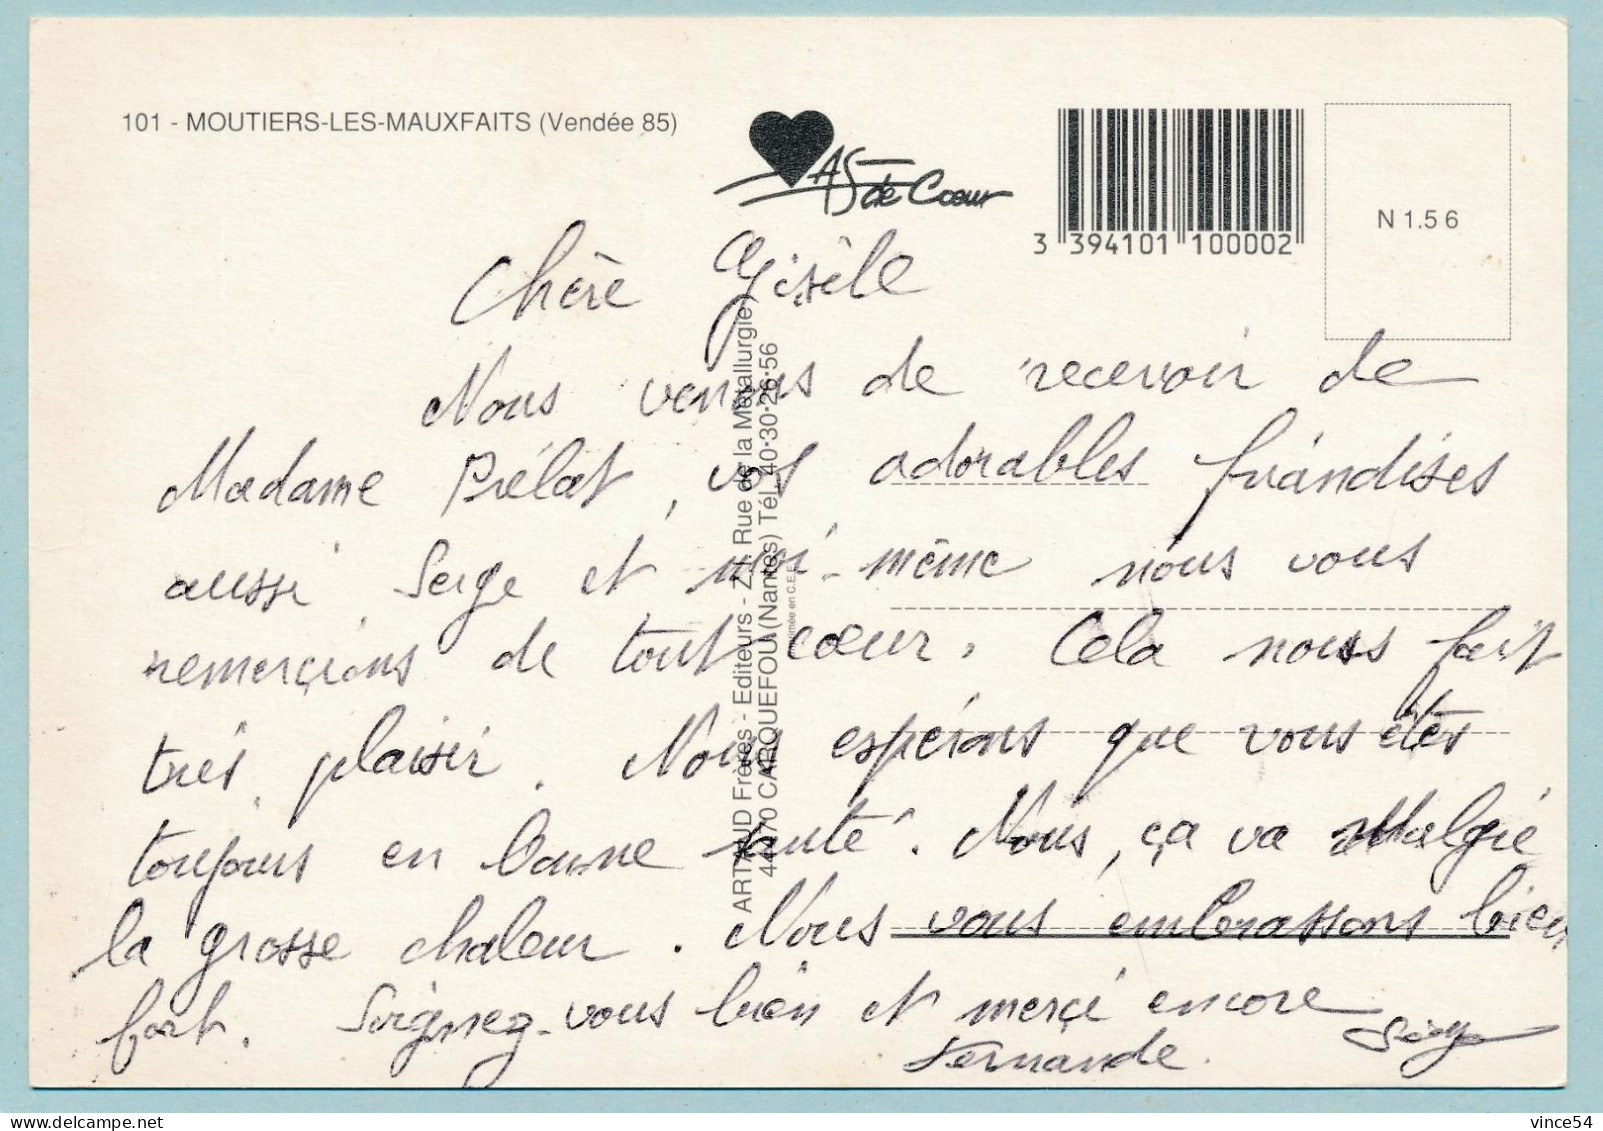 101 - MOUTIERS-LES-MAUXFAITS (Vendée 85)
AS de Cœur
3 394101 100002
N 1.5 6
Chère Gisèle
Nous venons de recevoir de
Madame Prélat, vos adorables friandises
aussi Serge et moi-même nous vous
remerçions de tout cœur. Cela nous fait
très plaisir. Nous espérons que vous êtes
toujours en bonne santé. Nous, ça va malgré
la grosse chaleur. Nous vous embrassons bien
fort. Soignez-vous bien et merçi encore
Fernande. Serge
ARTAUD Frères - Editeurs - Z.I. Rue de la Métallurgie
44470 CARQUEFOU (Nantes) Tél. 40·30·26·56
en C.E.E.
vince54